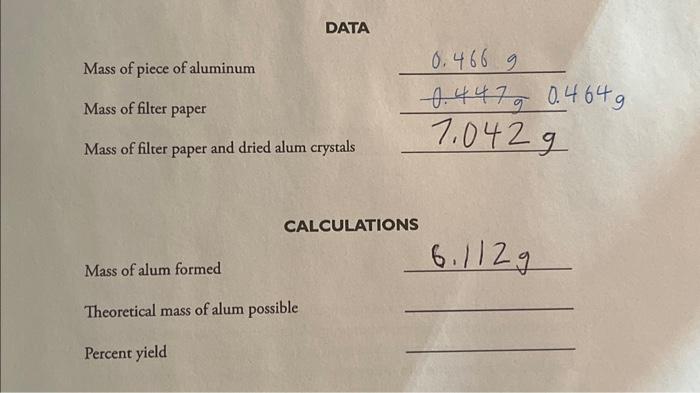 DATA
Mass of piece of aluminum 0.466 g
Mass of filter paper 0.447g 0.464g
Mass of filter paper and dried alum crystals 7.042 g
CALCULATIONS
Mass of alum formed 6.112g
Theoretical mass of alum possible
Percent yield